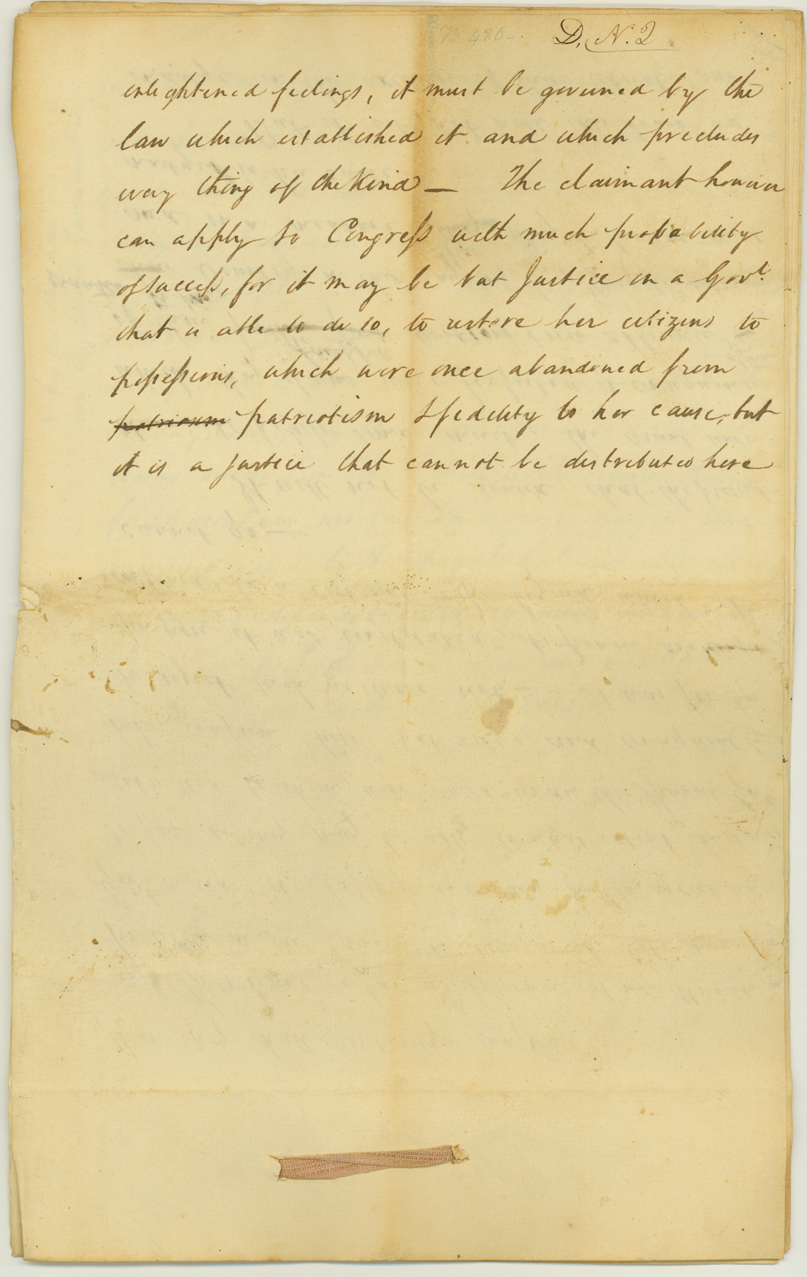 D. N. 2
enlightened feelings, it must be governed by the
law which established it and which precludes
every thing of the kind — The claimant however
can apply to Congress with much probability
of success, for it may be but Justice in a Govt.
that is able to do so, to restore her citizens to
possessions, which were once abandoned from
patriotism & fidelity to her cause, but
it is a justice that cannot be distributed here